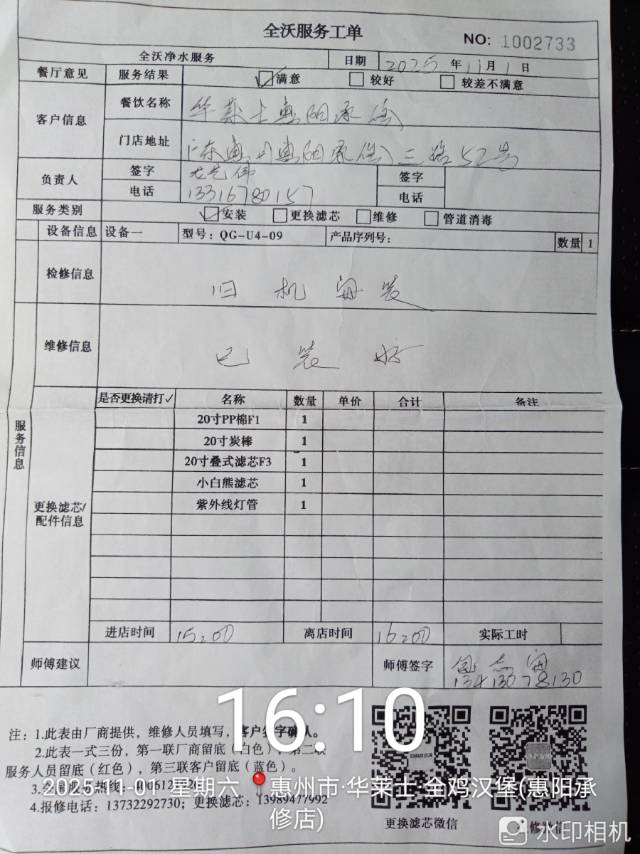 全沃服务工单
NO: 1002733
全沃净水服务 日期 2025年11月1日
餐厅意见 服务结果 ☑满意 □较好 □较差不满意
客户信息 餐饮名称 华莱士惠阳承修
门店地址 广东惠州惠阳承修三路52号
负责人 签字 签字
电话 13316780157 电话
服务类别 ☑安装 □更换滤芯 □维修 □管道消毒
服务信息
设备信息 设备一 型号: QG-U4-09 产品序列号: 数量 1
检修信息 旧机安装
维修信息 已装好
更换滤芯/配件信息
是否更换请打✓ 名称 数量 单价 合计 备注
20寸PP棉F1 1
20寸炭棒 1
20寸叠式滤芯F3 1
小白熊滤芯 1
紫外线灯管 1
进店时间 15:00 离店时间 16:00 实际工时
师傅建议 师傅签字
13413078130
注: 1.此表由厂商提供，维修人员填写，客户签字确认。
2.此表一式三份，第一联厂商留底（白色），第二联
服务人员留底（红色），第三联客户留底（蓝色）。
4.报修电话: 13732292730; 更换滤芯: 13989477992
更换滤芯微信
16:10
2025-11-01 星期六 惠州市·华莱士·全鸡汉堡(惠阳承
修店)
水印相机